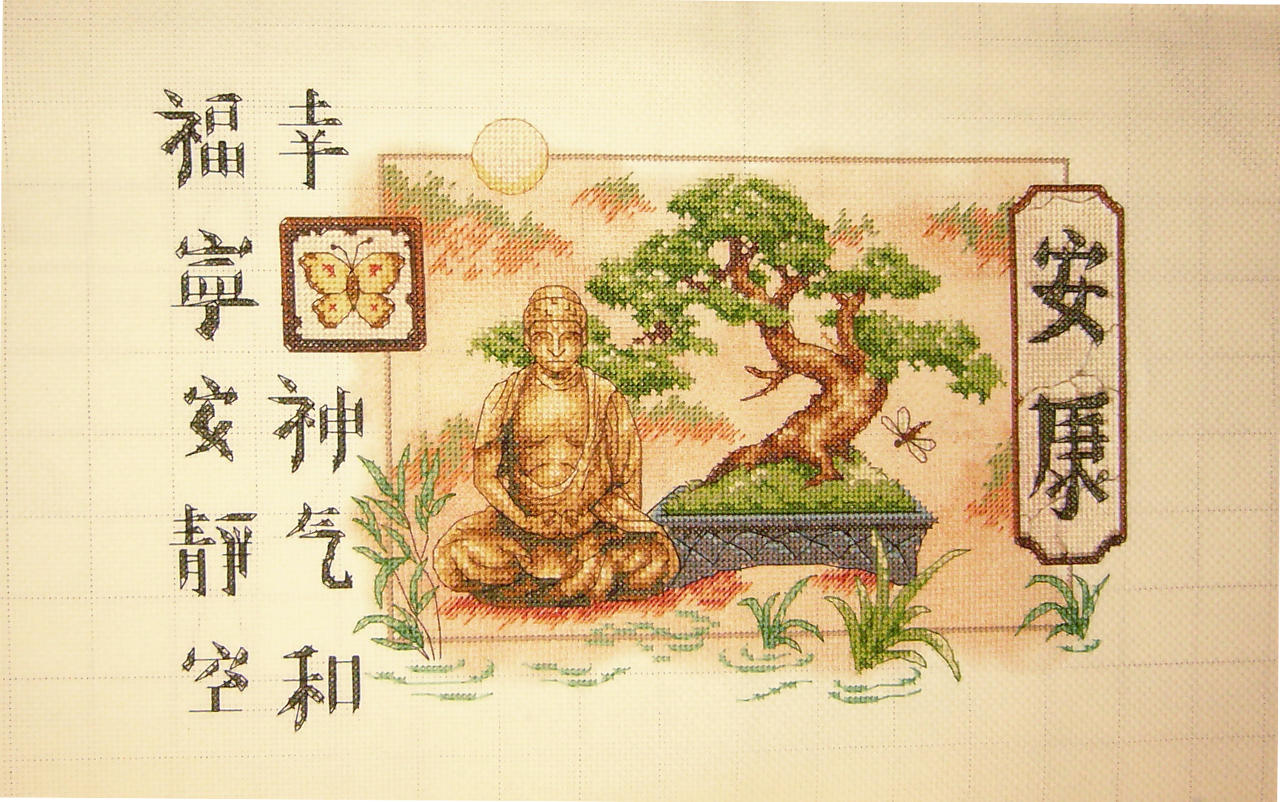 安康
幸神气和
福寧安靜空